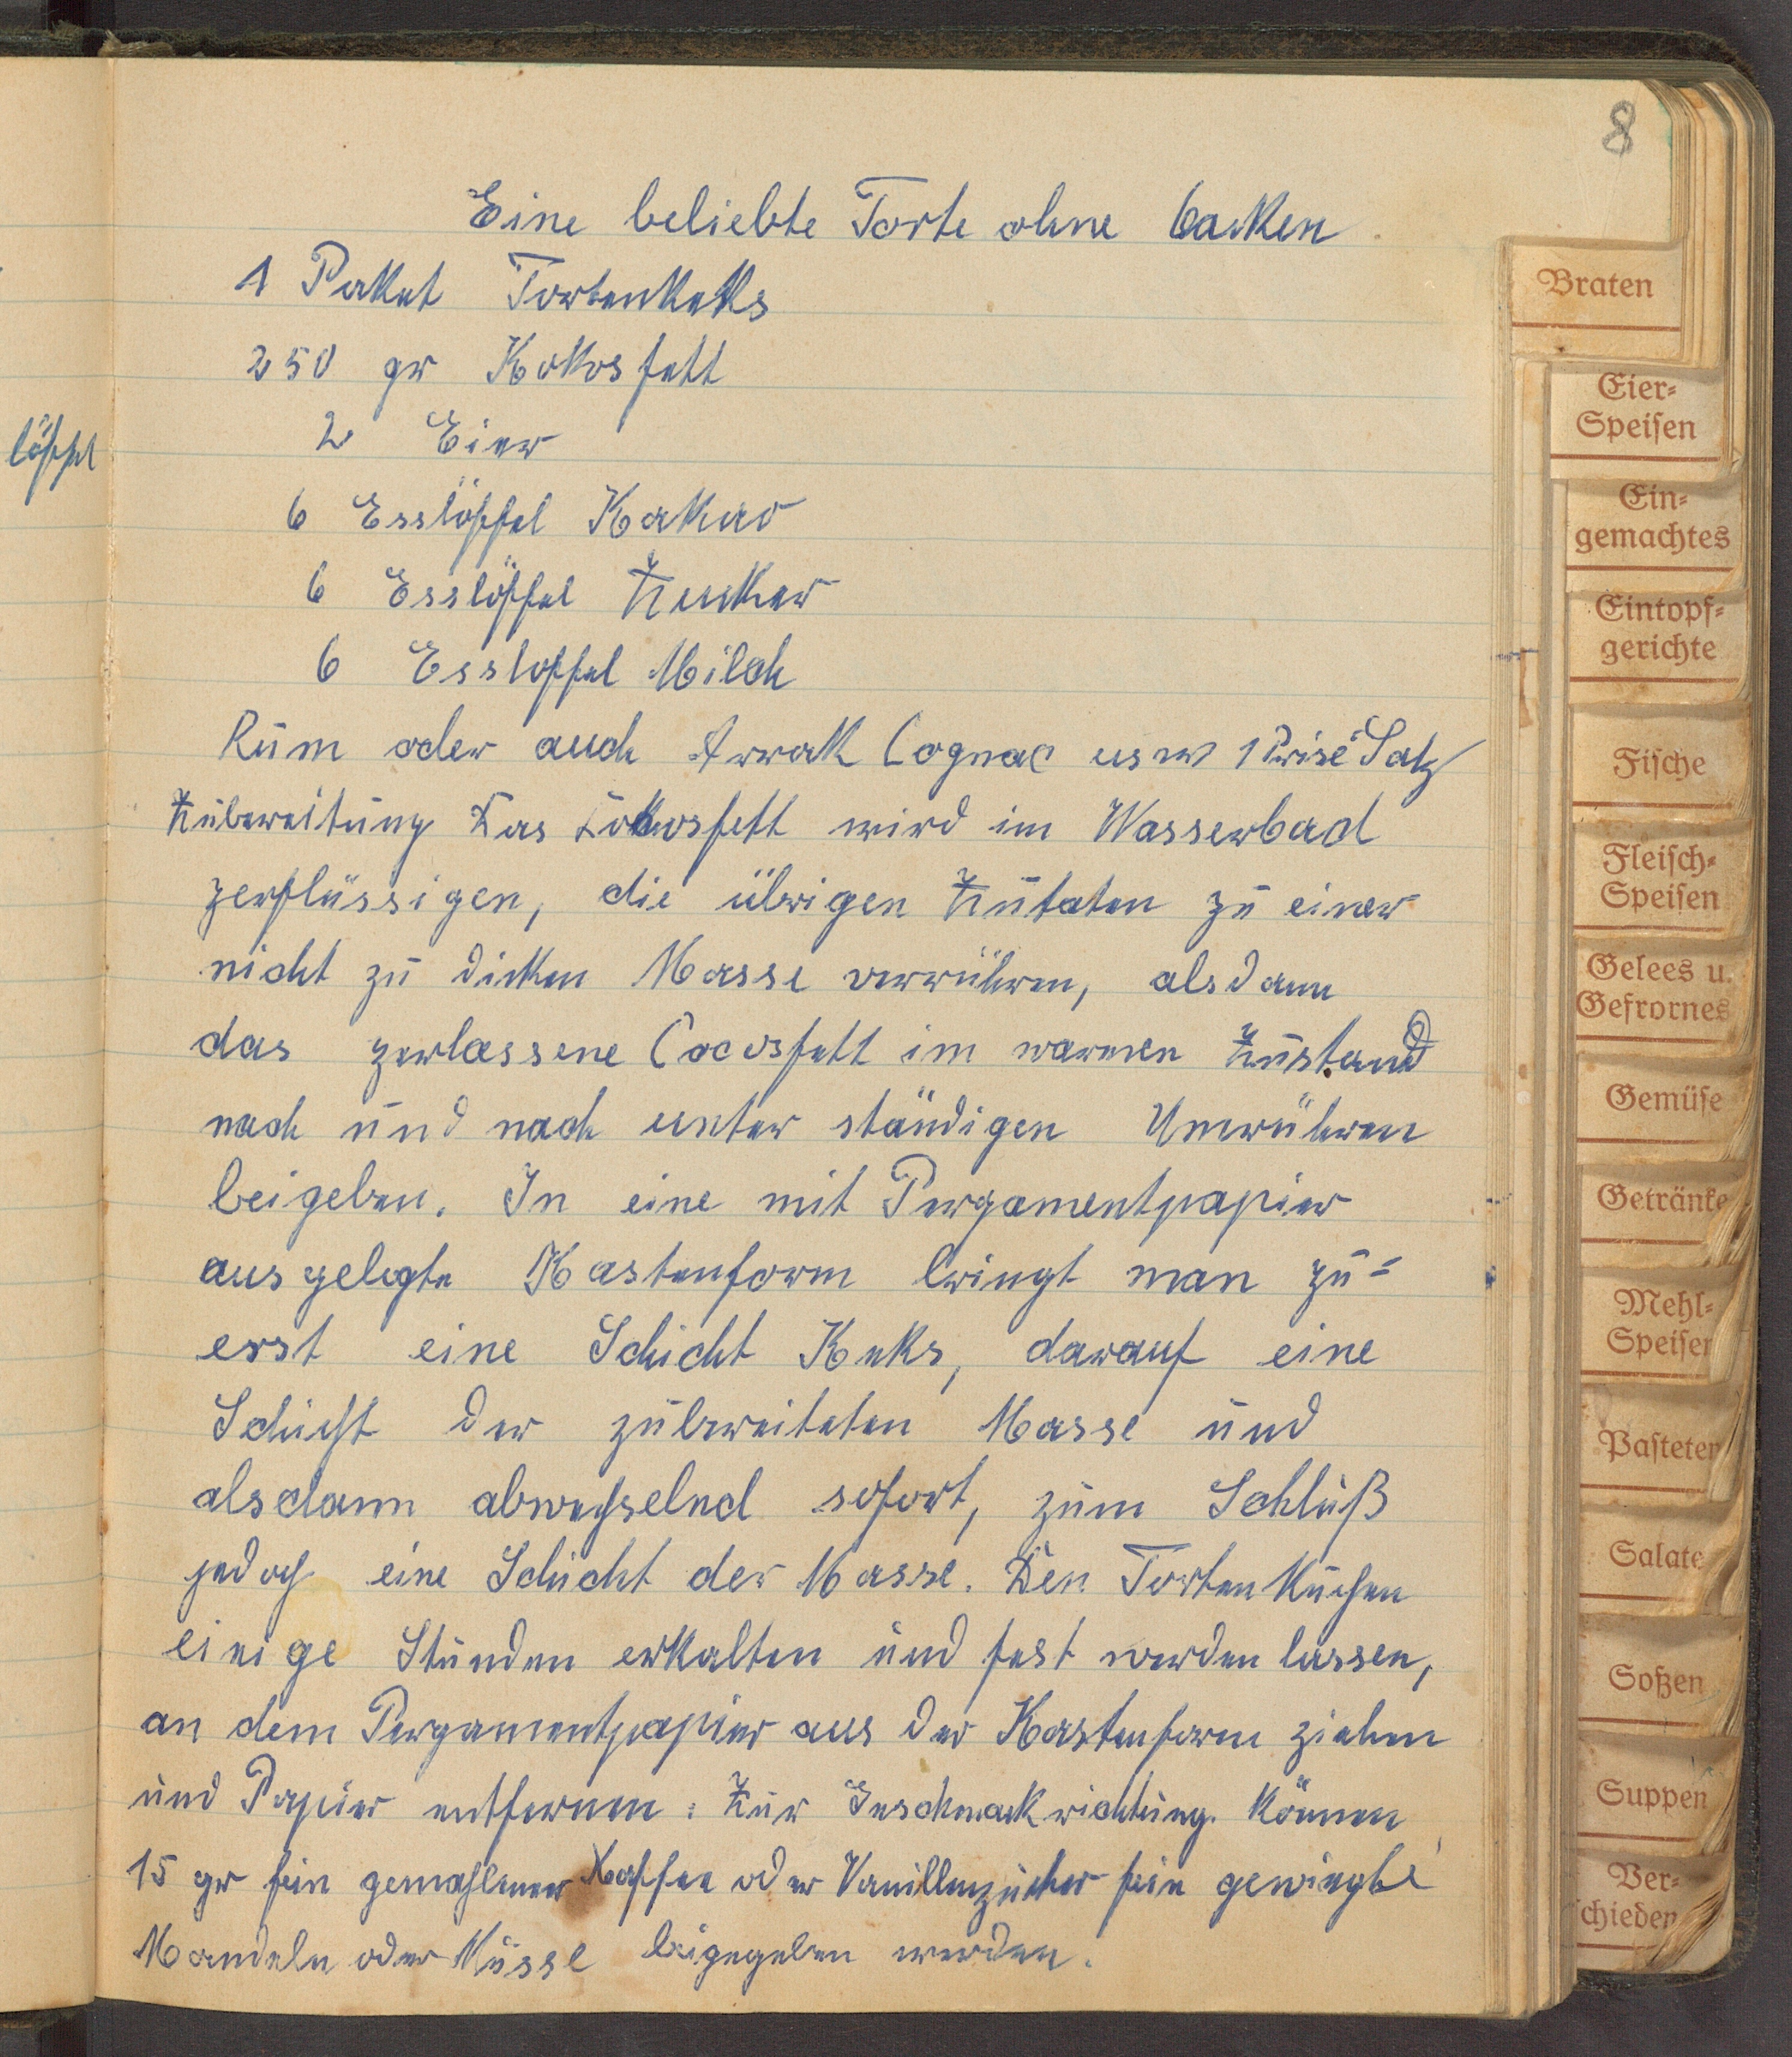 8
Eine beliebte Torte ohne backen
1 Paket Tortenkeks
250 gr Kokosfett
2 Eier
löffel
6 Esslöffel Kakao
6 Esslöffel Zucker
6 Essloffel Milch
Rum oder auch Arrak Cognac usw 1 Prise Salz
Zubereitung Das Kokosfett wird im Wasserbad
zerflüssigen, die übrigen Zutaten zu einer
nicht zu dicken Masse verrühren, alsdann
das zerlassene Cocosfett im warmen Zustand
nach und nach unter ständigen Umrühren
beigeben. In eine mit Pergamentpapier
ausgelegte Kastenform bringt man zu=
erst eine Schicht Keks, darauf eine
Schicht der zubereiteten Masse und
alsdann abwechselnd sofort, zum Schluß
jedoch eine Schicht der Masse. Den Tortenkuchen
einige Stunden erkalten und fest werden lassen,
an dem Pergamentpapier aus der Kastenform ziehen
und Papier entfernen. Zur Geschmackrichtung können
15 gr fein gemahlener Kaffee oder Vanillezucker fein gewiegte
Mandeln oder Nüsse beigegeben werden.
Braten
Eier=
Speisen
Ein=
gemachtes
Eintopf=
gerichte
Fische
Fleisch=
Speisen
Gelees u.
Gefrornes
Gemüse
Getränke
Mehl=
Speisen
Pasteten
Salate
Soßen
Suppen
Ver=
schieden